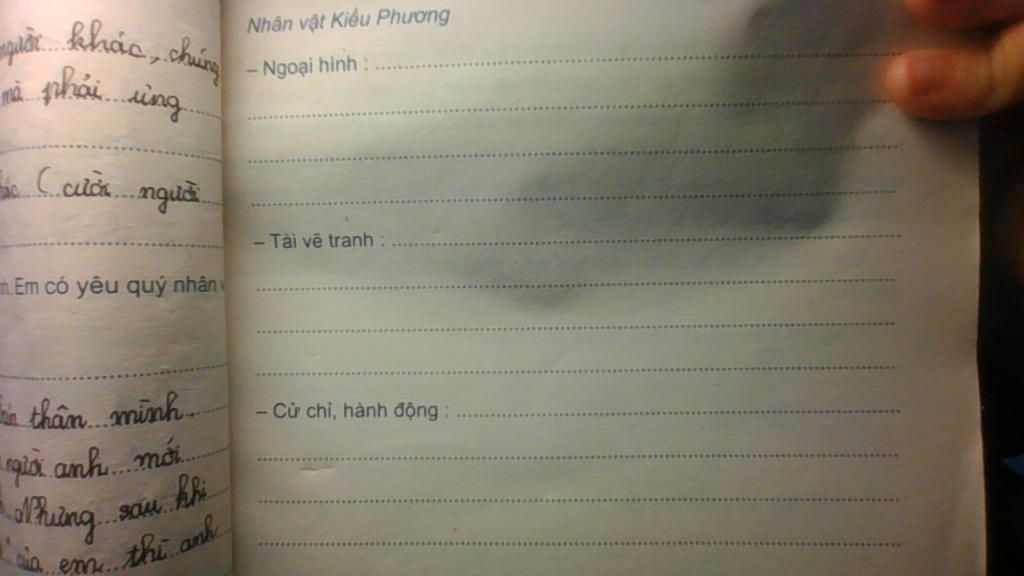 người khác, chúng
mà phải ứng
( cười người
Em có yêu quý nhân
thân mình
người anh mới
Nhưng sau khi
của em thì anh
Nhân vật Kiều Phương
– Ngoại hình :
– Tài vẽ tranh :
– Cử chỉ, hành động :